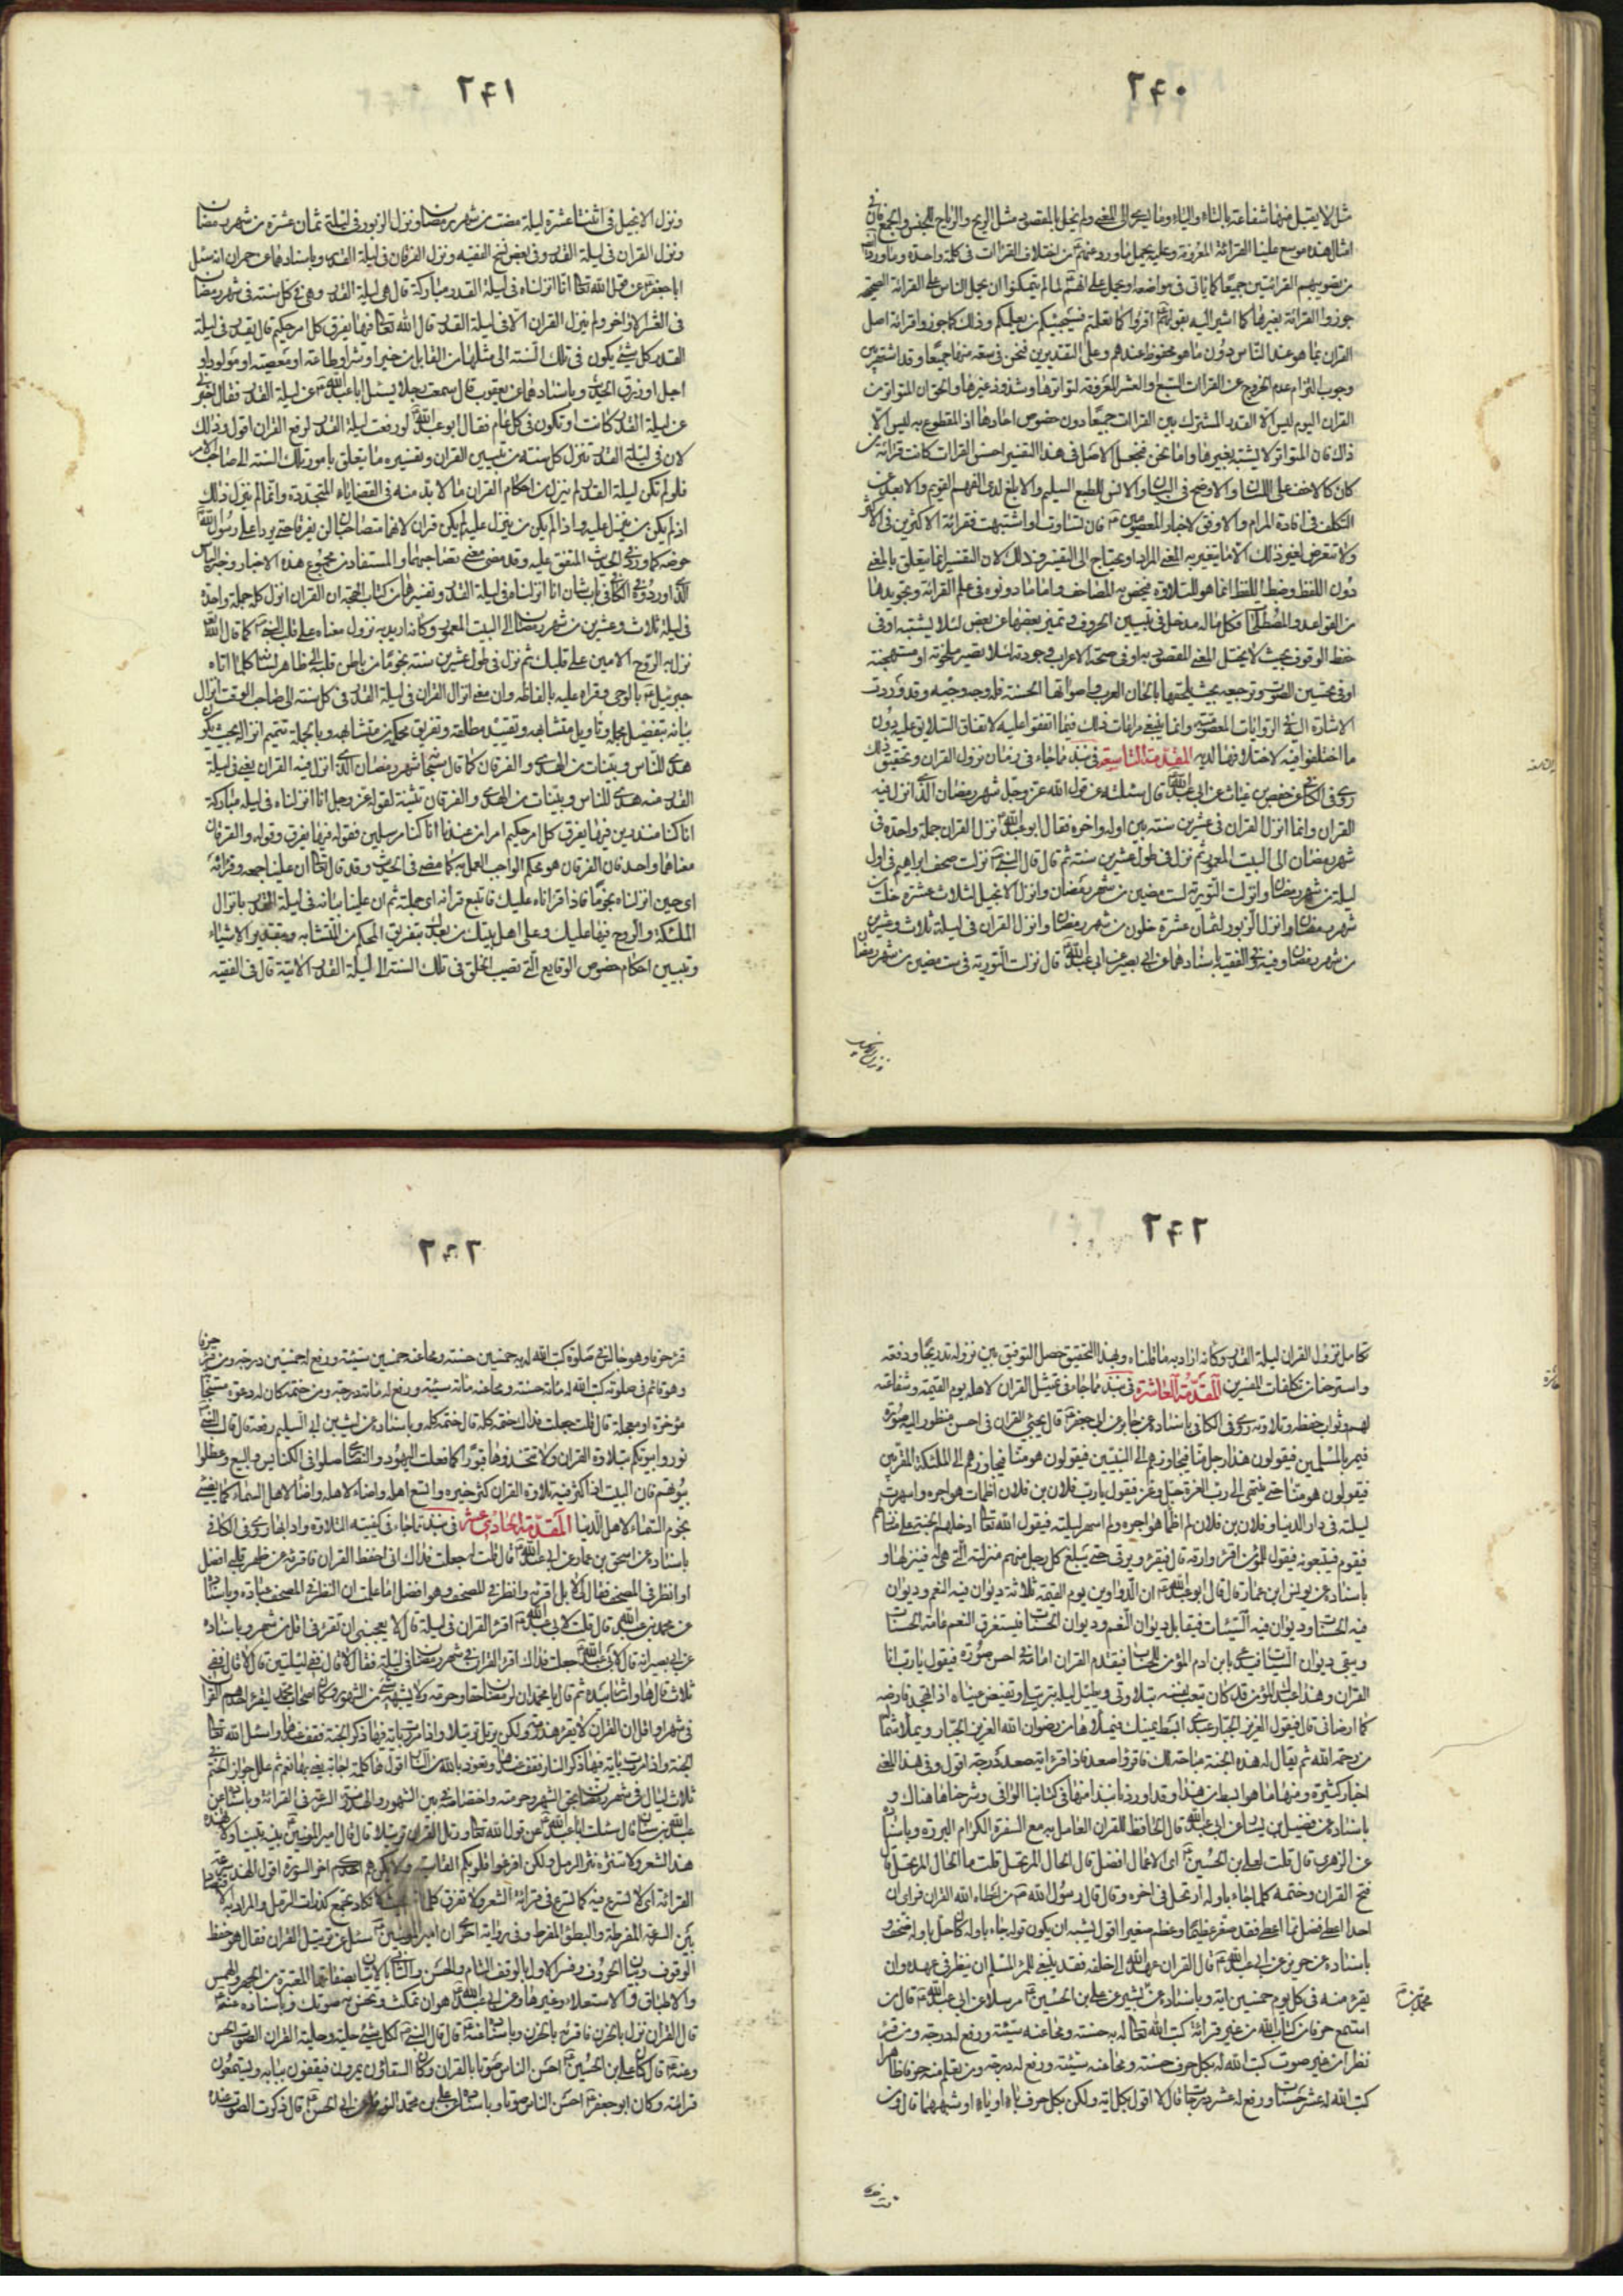 ۲۴۰
مثل لا يقبل منها شفاعة بالتاء والياء وما يسري الى المعنى ولم يخل بالمقصود مثل الريح والرياح للجنس والجمع فان في
امثال هذه موسع علينا القرائة المعروفة وعليه يحمل ما ورد عنهم من اختلاف القراءات في كلمة واحدة وما ورد ايضا
من تصويبهم القرائتين جميعا كما ياتي في مواضعه او يحمل على انهم لما لم يتمكنوا ان يحمل الناس على القرائة الصحيحة
جوزوا القرائة بغيرها كما اشير اليه بقولهم اقرؤا كما تعلمتم فسيجيئكم من يعلمكم وذلك كما جوزوا قرائة اصل
القران بما هو عند الناس دون ما هو محفوظ عندهم وعلى التقديرين فنحن في سعة منها جميعا وقد اشتهر بين
وجوب التزام عدم الخروج عن القراءات السبع او العشر المعروفة لتواترها وشذوذ غيرها والحق ان المتواتر من
القران اليوم ليس الا القدر المشترك بين القراءات جميعا دون خصوص احادها اذ المقطوع به ليس الا
ذاك فان المتواتر لا يشتبه بغيره واما نحن فنجعل الاصل في هذا التفسير احسن القراءات كانت قرائة من
كان كالاخف على اللسان والاوضح في البيان والانس للطبع السليم والابلغ لذي الفهم القويم والابعد عن
التكلف في افادة المرام والاوفق لاخبار المعصومين فان تساوت او اشتبهت فقرائة الاكثرين في الاكثر
ولا نتعرض لغير ذلك الا ما يتغير به المعنى المراد او يحتاج الى التفسير وذلك لان التفسير انما يتعلق بالمعنى
دون اللفظ وضبط اللفظ انما هو للتلاوة فيخص به المصاحف واما ما دونوه في علم القرائة وتجويدها
من القواعد والمصطلحات فكل ما له مدخل في تبيين الحروف وتمييز بعضها عن بعض لئلا يشتبه او في
حفظ الوقوف بحيث لا يختل المعنى المقصود به او في صحة الاعراب وجودته لئلا تصير ملحونة او مستهجنة
او في تحسين الصوت وترجيعه بحيث يلحقها بالحان العرب واصواتها الحسنة فله وجه وجيه وقد وردت
الاشارة اليه في الروايات المعصومية وانما ينبغي مراعات ذلك فيما اتفقوا عليه لاتفاق السلايق عليه دون
ما اختلفوا فيه لاختلافها لديه المقدمة التاسعة في نبذ مما جاء في زمان نزول القران وتحقيق ذلك
روى في الكافي عن حفص بن غياث عن ابي عبدالله قال سئلته عن قول الله عز وجل شهر رمضان الذي انزل فيه
القران وانما انزل القران في عشرين سنة بين اوله واخره فقال ابو عبدالله نزل القران جملة واحدة في
شهر رمضان الى البيت المعمور ثم نزل في طول عشرين سنة ثم قال قال النبي نزلت صحف ابراهيم في اول
ليلة من شهر رمضان وانزلت التورية لست مضين من شهر رمضان وانزل الانجيل لثلاث عشرة خلت
شهر رمضان وانزل الزبور لثمان عشرة خلون من شهر رمضان وانزل القران في ليلة ثلاث وعشرين
من شهر رمضان وفيه وفي الفقيه باسنادهما عن ابي بصير عن ابي عبدالله قال نزلت التورية في ست مضين من شهر رمضان
ونزل الانجيل
۲۴۱
ونزل الانجيل في اثنتا عشرة ليلة مضت من شهر رمضان ونزل الزبور في ليلة ثمان عشرة من شهر رمضان
ونزل القران في ليلة القدر وفي بعض نسخ الفقيه ونزل الفرقان في ليلة القدر وباسنادهما عن حمران انه سئل
ابا جعفر عن قول الله تعالى انا انزلناه في ليلة القدر مباركة قال هي ليلة القدر وهي في كل سنة في شهر رمضان
في العشر الاواخر ولم ينزل القران الا في ليلة القدر قال الله تعالى فيها يفرق كل امر حكيم قال يقدر في ليلة
القدر كل شيء يكون في تلك السنة الى مثلها من القابل من خير او شر او طاعة او معصية او مولود او
اجل او رزق الحديث وباسنادهما عن يعقوب قال سمعت رجلا يسئل ابا عبدالله عن ليلة القدر فقال اخبرني
عن ليلة القدر كانت او تكون في كل عام فقال ابو عبدالله لو رفعت ليلة القدر لرفع القران اقول وذلك
لان في ليلة القدر ينزل كل سنة من تبيين القران وتفسيره ما يتعلق بامور تلك السنة الى صاحب الامر
فلو لم تكن ليلة القدر لم ينزل من احكام القران ما لا بد منه في القضاياء المتجددة وانما لم ينزل ذلك
اذ لم يكن من ينزل عليه واذا لم يكن من ينزل عليه لم يكن قران لانهما متصاحبان لن يفترقا حتى يردا على رسول الله
حوضه كما ورد في الحديث المتفق عليه وقد مضى معنى تصاحبهما والمستفاد من مجموع هذه الاخبار وخبر الياس
الذي اورده في الكافي في باب شان انا انزلناه في ليلة القدر وتفسيرها من كتاب الحجة ان القران انزل كله جملة واحدة
في ليلة ثلاث وعشرين من شهر رمضان الى البيت المعمور وكانه اريد به نزول معناه على قلب النبي كما قال الله
نزل به الروح الامين على قلبك ثم نزل في طول عشرين سنة نجوما من باطن قلبه الى ظاهر لسانه كلما اتاه
جبرئيل بالوحي وقراه عليه بالفاظه وان معنى انزال القران في ليلة القدر في كل سنة الى صاحب الوقت انزال
بيانه بتفصيل مجمله وتاويل متشابهه وتقييد مطلقه وتفريق محكمه من متشابهه وبالجملة تتميم انزاله بحيث يكون
هدى للناس وبينات من الهدى والفرقان كما قال سبحانه شهر رمضان الذي انزل فيه القران يعني في ليلة
القدر منه هدى للناس وبينات من الهدى والفرقان تثنية لقوله عز وجل انا انزلناه في ليلة مباركة
انا كنا منذرين فيها يفرق كل امر حكيم امرا من عندنا انا كنا مرسلين فقوله فيها يفرق وقوله والفرقان
معناهما واحد فان الفرقان هو المحكم الواجب العمل به كما مضى في الحديث وقد قال تعالى ان علينا جمعه وقرانه
اى حين انزلناه نجوما فاذا قراناه عليك فاتبع قرانه اى جملته ثم ان علينا بيانه في ليلة القدر بانزال
الملئكة والروح فيها عليك وعلى اهل بيتك من بعدك بتفريق المحكم من المتشابه وبتقدير الاشياء
وتبيين احكام خصوص الوقايع التي تصيب الخلق في تلك السنة الى ليلة القدر الاتية قال في الفقيه
۲۴۲
تكامل نزول القران ليلة القدر وكانه اراد به ما قلناه وبهذا التحقيق حصل التوفيق بين نزوله تدريجا ودفعة
واسترحنا من تكلفات المفسرين المقدمة العاشرة في نبذ مما جاء في تمثل القران لاهله يوم القيمة وشفاعته
لهم وثواب حفظه وتلاوته روى في الكافي باسناده عن جابر عن ابي جعفر قال يجيئ القران في احسن منظور اليه صورة
فيمر بالمسلمين فيقولون هذا رجل منا فيجاوزهم الى النبيين فيقولون هو منا فيجاوزهم الى الملئكة المقربين
فيقولون هو منا حتى ينتهي الى رب العزة جل وعز فيقول يا رب فلان بن فلان اظمأت هواجره واسهرت
ليلته في دار الدنيا وفلان بن فلان لم اظمأ هواجره ولم اسهر ليلته فيقول الله تعالى ادخلهم الجنة على منازلهم
فيقوم فيتبعونه فيقول للمؤمن اقرء وارقه قال فيقرء ويرقى حتى يبلغ كل رجل منهم منزلته التي هي له فينزلها و
باسناده عن يونس ابن عمار قال قال ابو عبدالله ان الدواوين يوم القيمة ثلاثة ديوان فيه النعم وديوان
فيه الحسنات وديوان فيه السيئات فيقابل ديوان النعم وديوان الحسنات فيستغرق النعم عامة الحسنات
ويبقى ديوان السيئات فيدعى بابن ادم المؤمن للحساب فيتقدم القران امامه في احسن صورة فيقول يا رب انا
القران وهذا عبدك المؤمن قد كان يتعب نفسه بتلاوتي ويطيل ليله بترتيلي وتفيض عيناه اذا تهجد فارضه
كما ارضاني قال فيقول العزيز الجبار عبدي ابسط يمينك فيملأها من رضوان الله العزيز الجبار ويملأ شماله
من رحمة الله ثم يقال له هذه الجنة مباحة لك فاقرء واصعد فاذا قرء اية صعد درجة اقول وفي هذا المعنى
اخبار كثيرة ومنها ما هو ابسط من هذا وقد اوردنا نبذا منها في كتابنا الوافي وشرحناها هناك و
باسناده عن فضيل بن يسار عن ابي عبدالله قال الحافظ للقران العامل به مع السفرة الكرام البررة وباسناده
عن الزهري قال قلت لعلي بن الحسين اى الاعمال افضل قال الحال المرتحل قلت ما الحال المرتحل قال
فتح القران وختمه كلما جاء باوله ارتحل في اخره وقال قال رسول الله من اعطاه الله القران فراى ان
احدا اعطى افضل مما اعطي فقد صغر عظيما وعظم صغيرا اقول يشبه ان يكون قوله جاء باوله كان حل باوله فصحف و
باسناده عن حريز عن ابي عبدالله قال القران عهد الله الى خلقه فقد ينبغي للمرء المسلم ان ينظر في عهده وان
يقرء منه في كل يوم خمسين اية وباسناده عن بشير عن علي بن الحسين مرسلا عن ابي عبدالله قال من
استمع حرفا من كتاب الله من غير قرائة كتب الله تعالى له به حسنة ومحا عنه سيئة ورفع له درجة ومن قرء
نظرا من غير صوت كتب الله له بكل حرف حسنة ومحا عنه سيئة ورفع له درجة ومن تعلم منه حرفا ظاهرا
كتب الله له عشر حسنات ورفع له عشر درجات قال لا اقول بكل اية ولكن بكل حرف باء او ياء او شبههما قال ومن
۲۴۳
قرء حرفا وهو جالس في صلوة كتب الله له به خمسين حسنة ومحا عنه خمسين سيئة ورفع له خمسين درجة ومن قرء حرفا
وهو قائم في صلوته كتب الله له مائة حسنة ومحا عنه مائة سيئة ورفع له مائة درجة ومن ختمه كان له دعوة مستجابة
مؤخرة او معجلة قال قلت جعلت فداك ختمه كله قال ختمه كله وباسناده عن ليث بن ابي السليم رفعه قال قال النبي
نوروا بيوتكم بتلاوة القران ولا تتخذوها قبورا كما فعلت اليهود والنصارى صلوا في الكنايس والبيع وعطلوا
بيوتهم فان البيت اذا كثر فيه تلاوة القران كثر خيره واتسع اهله واضاء لاهل السماء كما يضيئ
نجوم السماء لاهل الدنيا المقدمة الحادي عشر في نبذ مما جاء في كيفية التلاوة وادابها روى في الكافي
باسناده عن اسحق بن عمار عن ابي عبدالله قال قلت له جعلت فداك اني احفظ القران فاقرئه عن ظهر قلبي افضل
او انظر في المصحف فقال لا بل اقرئه وانظر في المصحف وهو افضل اما علمت ان النظر في المصحف عبادة وباسناده
عن محمد بن عبدالله قال قلت لابي عبدالله اقرء القران في ليلة قال لا يعجبني ان تقرئه في اقل من شهر وباسناده
عن ابي بصير انه قال لابي عبدالله جعلت فداك اقرء القران في شهر رمضان في ليلة فقال لا قال ففي ليلتين قال لا قال ففي
ثلاث قال ها واشار بيده ثم قال يا ابا محمد ان لرمضان حقا وحرمة ولا يشبهه شيء من الشهور وكان اصحاب محمد يقرء احدهم القران
في شهر او اقل ان القران لا يقرء هذرمة ولكن يرتل ترتيلا واذا مررت باية فيها ذكر الجنة فقف عندها واسئل الله تعالى
الجنة واذا مررت باية فيها ذكر النار فقف عندها وتعوذ بالله من النار اقول ها كلمة اجابة يعني بها نعم ثم علل جواز الختم في
ثلاث ليال في شهر رمضان بحق الشهر وحرمته واختصاصه من بين الشهور والهذرمة السرعة في القرائة وباسناده عن
عبدالله بن سليمان قال سئلت ابا عبدالله عن قول الله تعالى ورتل القران ترتيلا قال قال امير المؤمنين بينه تبيانا ولا تهذه
هذ الشعر ولا تنثره نثر الرمل ولكن افزعوا قلوبكم القاسية ولا يكن هم احدكم اخر السورة اقول الهذ السرعة
القرائة اى لا تسرع فيه كما تسرع في قرائة الشعر ولا تفرق كلماته بحيث لا تكاد تجتمع كذرات الرمل والمراد به
بين السرعة المفرطة والبطؤ المفرط وفي رواية اخرى ان امير المؤمنين سئل عن ترتيل القران فقال هو حفظ
الوقوف وبيان الحروف وفسر الاول بالوقف التام والحسن والثاني بالاتيان بصفاتها المعتبرة من الجهر والهمس
والاطباق والاستعلاء وغيرها وعن ابي عبدالله هو ان تمكث وتحسن به صوتك وباسناده عنه
قال القران نزل بالحزن فاقرؤه بالحزن وباسناده عنه قال قال النبي لكل شيء حلية وحلية القران الصوت الحسن
وعنه قال كان علي بن الحسين احسن الناس صوتا بالقران وكان السقاؤن يمرون فيقفون ببابه ويستمعون
قرائته وكان ابو جعفر احسن الناس صوتا وباسناده عن علي بن محمد النوفلي عن ابي الحسن قال ذكرت الصوت عنده